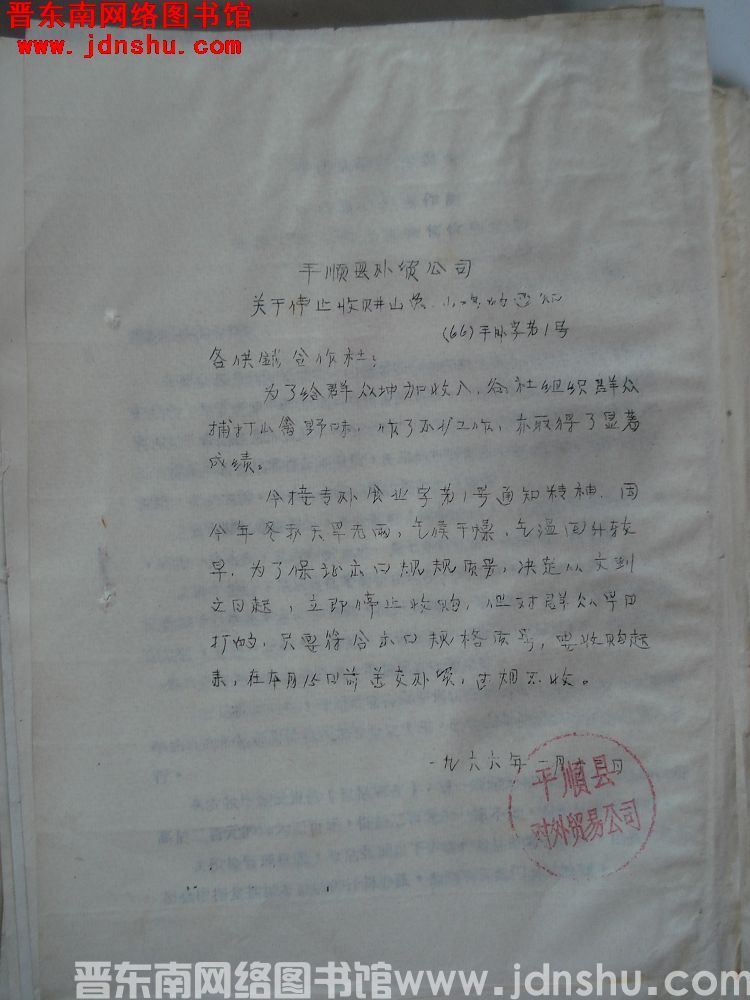 晋东南网络图书馆
www.jdnshu.com
平顺县外贸公司
关于停止收购山兔、的通知
(66)平外字第1号
各供销合作社：
为了给群众增加收入，各社组织群众
捕打山禽野味，作了不少工作，亦取得了显著
成绩。
今接专外食业字第1号通知精神，因
今年冬季天旱无雨，气候干燥，气温回升较
早，为了保证出口规规质量，决定从文到
之日起，立即停止收购，但对群众早日
打的，只要符合出口规格质量，要收购起
来，在本月15日前送交外贸，过期不收。
一九六六年二月日
平顺县
对外贸易公司
晋东南网络图书馆www.jdnshu.com